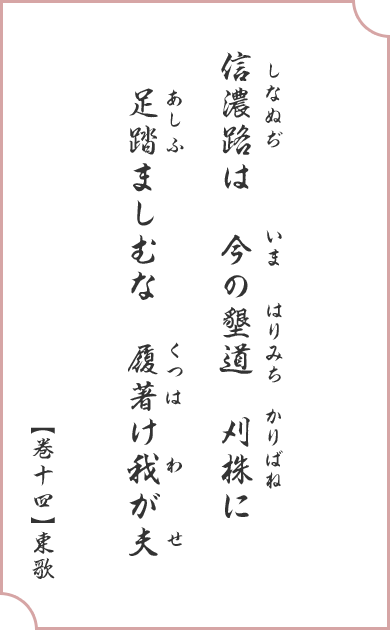 信濃路は　今の墾道　刈株に
しなぬぢ　いま　はりみち　かりばね
足踏ましむな　履著け我が夫
あしふ　くつは　わ　せ
【巻十四】東歌